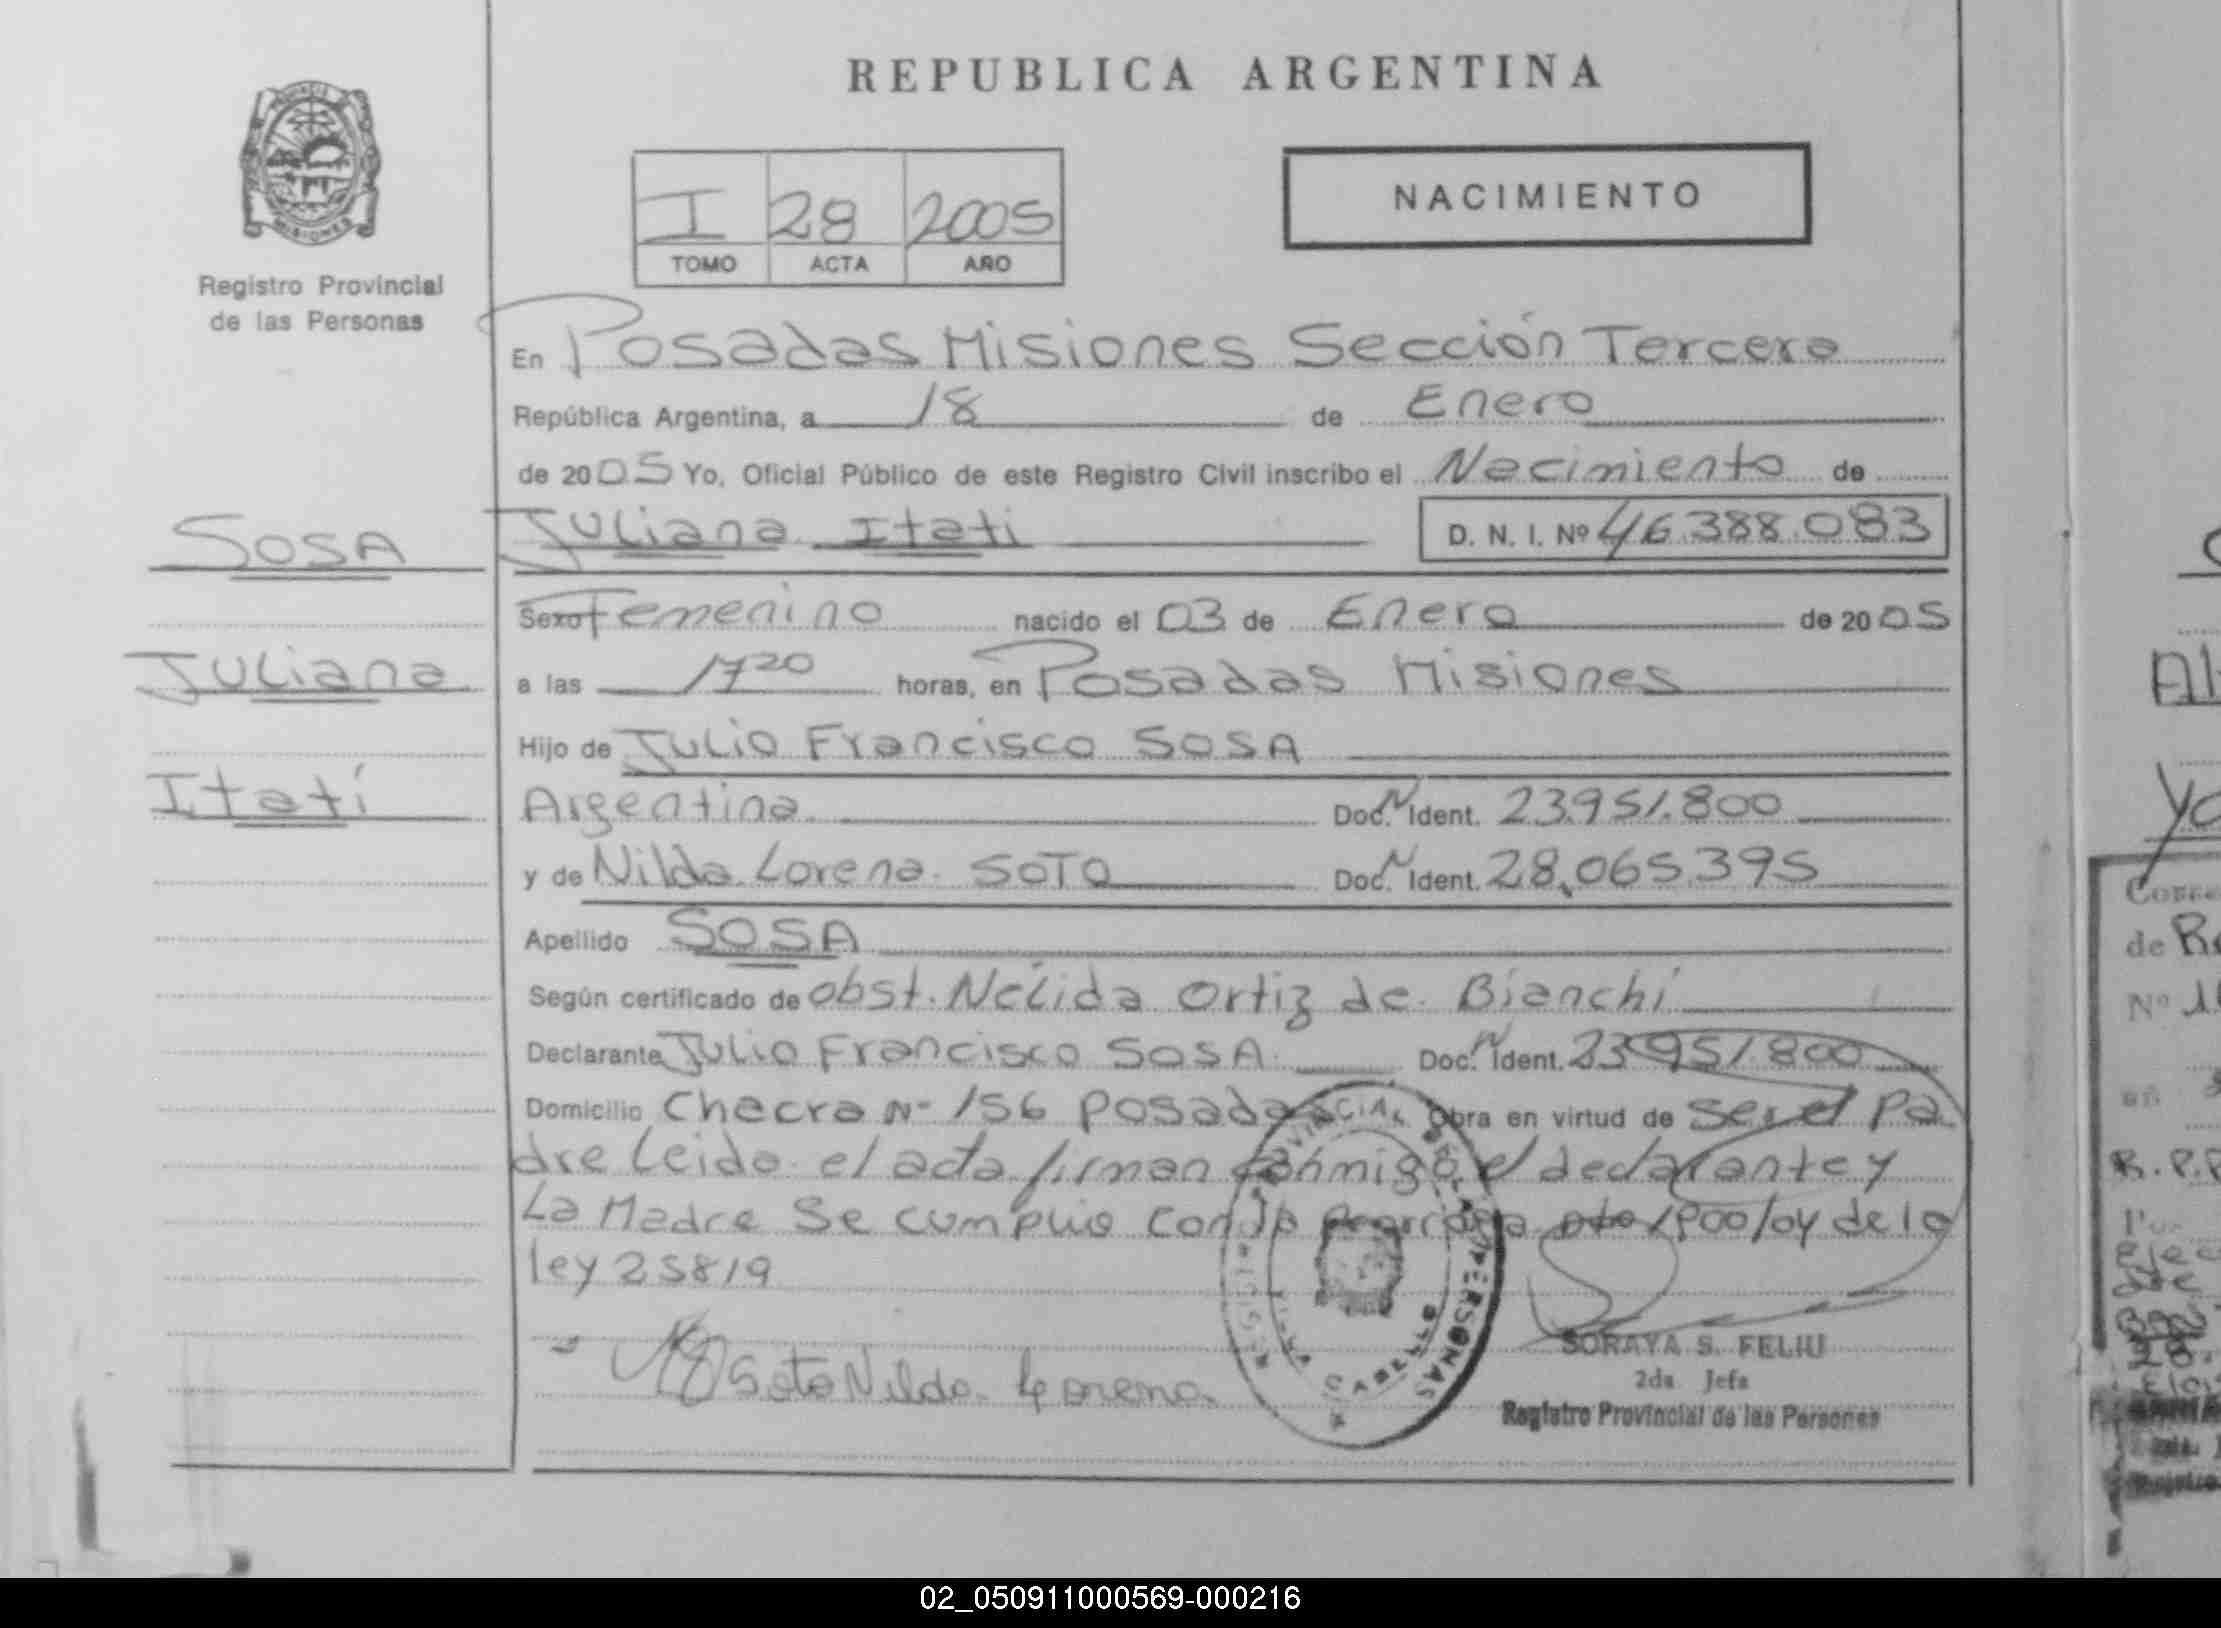 REPUBLICA ARGENTINA
PROVINCIA DE
MISIONES
Registro Provincial
de las Personas
I 28 2005
TOMO ACTA AÑO
NACIMIENTO
En Posadas Misiones Sección Tercera
República Argentina, a 18 de Enero
de 2005 Yo, Oficial Público de este Registro Civil inscribo el Nacimiento de
SOSA
Juliana Itati D. N. I. Nº 46.388.083
Sexo Femenino nacido el 03 de Enero de 2005
Juliana
a las 17 20 horas, en Posadas Misiones
Hijo de Julio Francisco SOSA
Itatí
Argentina Doc. N Ident. 23.951.800
y de Nilda Lorena SOTO Doc. N Ident. 28.065.395
Apellido SOSA
Según certificado de obst. Nélida Ortiz de Bianchi
Declarante Julio Francisco SOSA Doc. N Ident. 23951.800
Domicilio Chacra Nº 156 Posadas Obra en virtud de ser el pa
dre Leida el acta firman conmigo el declarante y
La Madre Se cumplio con la 1900/04 de la
ley 25819
Soto Nilda Lorena
REGISTRO PROVINCIAL DE LAS PERSONAS
VILLA CABELLO
SORAYA S. FELIU
2da Jefa
Registro Provincial de las Personas
Al
Yo
de R
Nº 1
en
R.P.P
02_050911000569-000216